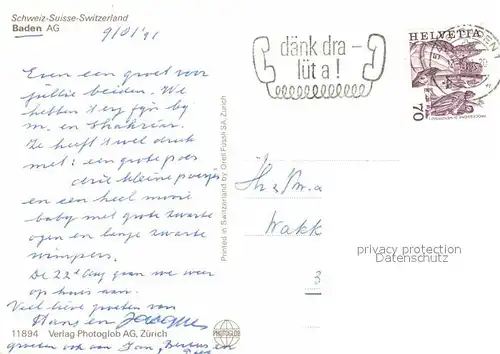 Schweiz-Suisse-Switzerland
Baden AG
9/01/91
Even een groet voor
jullie beiden. We
hebben 't erg fijn by
m. en Shahrin.
Ze heeft 't veel druk
met: een grote poes
drie kleine poesjes
en een heel mooi
baby met grote zwarte
ogen en lange zwarte
wimpers.
De 22e Aug gaan we weer
op huis aan.
Veel lieve groeten van
Hans en Jacques
groeten ook van Jan, en
11894 Verlag Photoglob AG, Zürich
Printed in Switzerland by Orell Füssli SA, Zürich
PHOTOGLOB
dänk dra –
lüt a !
HELVETIA
70
Wakk
3
privacy protection
Datenschutz